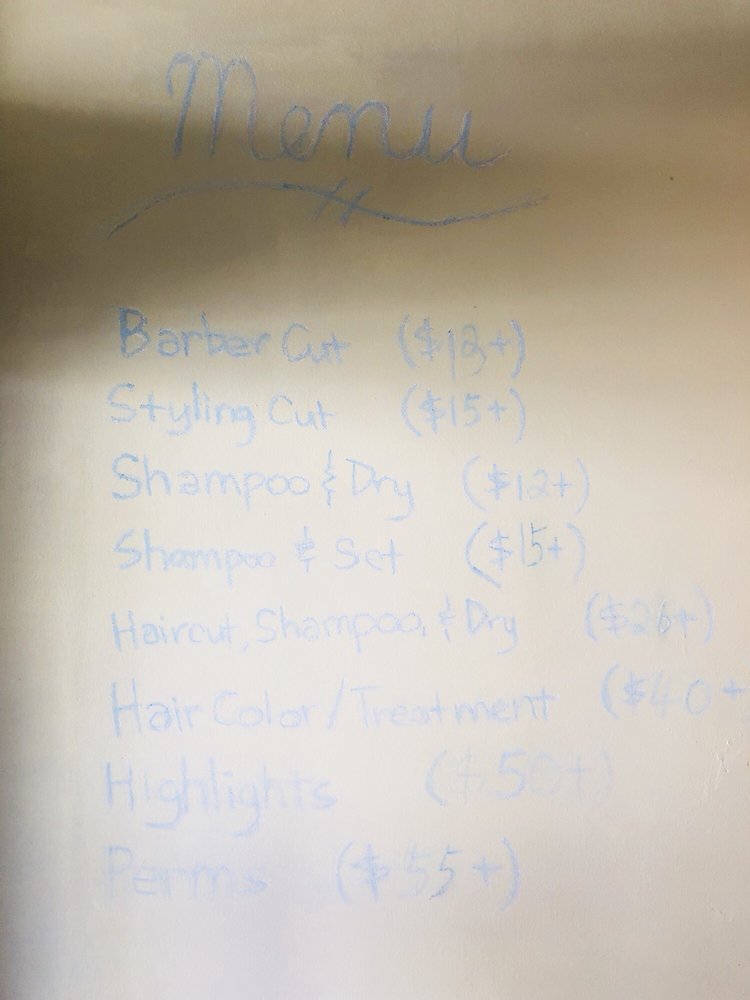 Menu
Barber Cut ($13+)
Styling Cut ($15+)
Shampoo & Dry ($12+)
Shampoo & Set ($15+)
Haircut, Shampoo, & Dry ($26+)
Hair Color/Treatment ($40+
Highlights ($50+)
Perms ($55+)